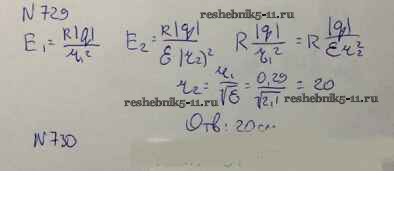 N 729
reshebnik5-11.ru
E₁ = R|q| / r₁² E₂ = R|q| / ε(r₂)² R |q| / r₁² = R |q| / εr₂²
r₂ = r₁ / √ε = 0,29 / √2,1 = 20
reshebnik5-11.ru reshebnik5-11.ru
Отв: 20см
N 730